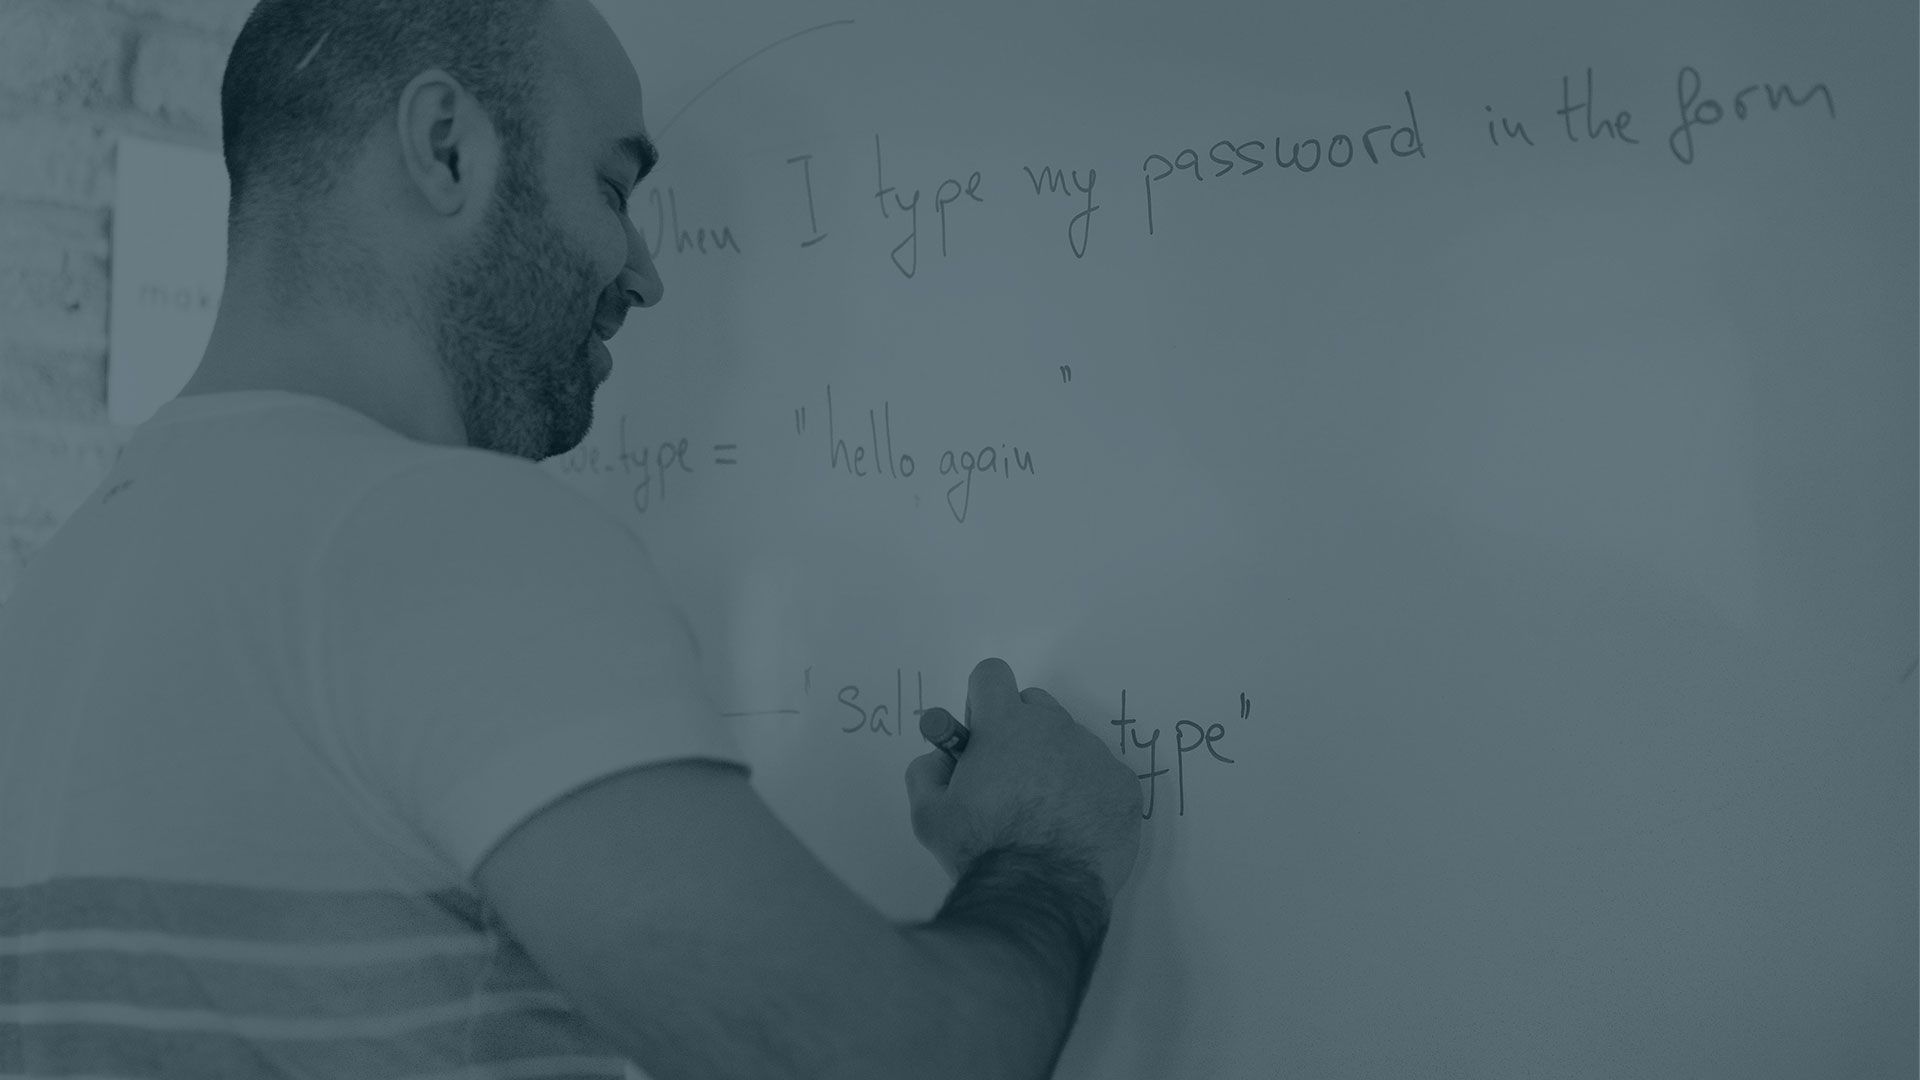 When I type my password in the form
we.type = "hello again"
— "Salt type"